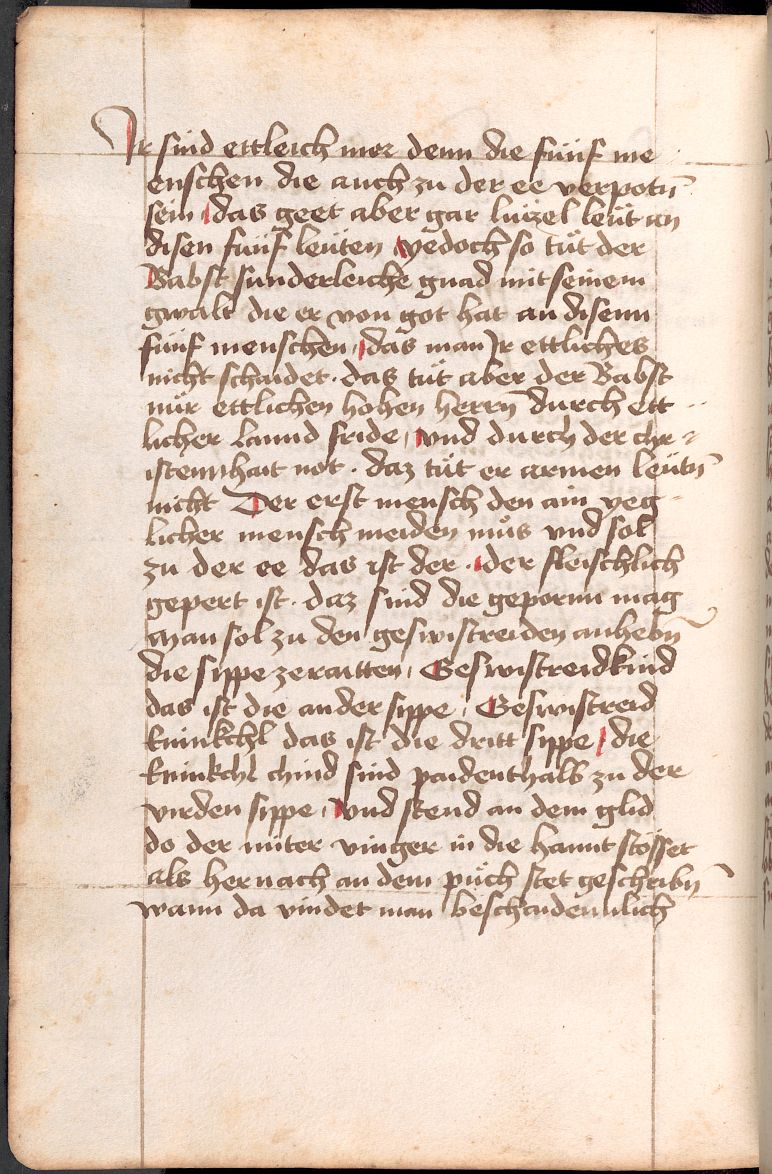 Ir sind ettleich mer denn die fünf me
enschen die auch zu der ee verpotñ
sein das geet aber gar lützel leüt an
disen fünf leüten yedoch so tüt der
Babst sunderleiche gnad mit seinem
gwalt die er von got hat an disenn
fünf menschen / das man Ir ettliches
nicht schaidet · das tüt aber der Babst
nür ettlichen hohen herrñ durch ett
licher lannd fride / vnd durch der chr
istennhait not · daz tüt er armen leütñ
nicht Der erst mensch den ain yeg
licher mensch meiden müs vnd sol
zu der ee das ist der · der fleischlich
gepert ist · daz sind die gepornn mag
man sol zu den geswistreiden anhebñ
die sippe zeraitten / Geswistreidkind
das ist die ander sippe / Geswistreid
kninkchl das ist die dritt sippe / die
kninkchl chind sind paidenthalb zu der
virden sippe / vnd stend an dem glid
do der miter vinger in die hannt stösset
als her nach an dem püch stet geschribñ
wann da vindet man beschaidennlich